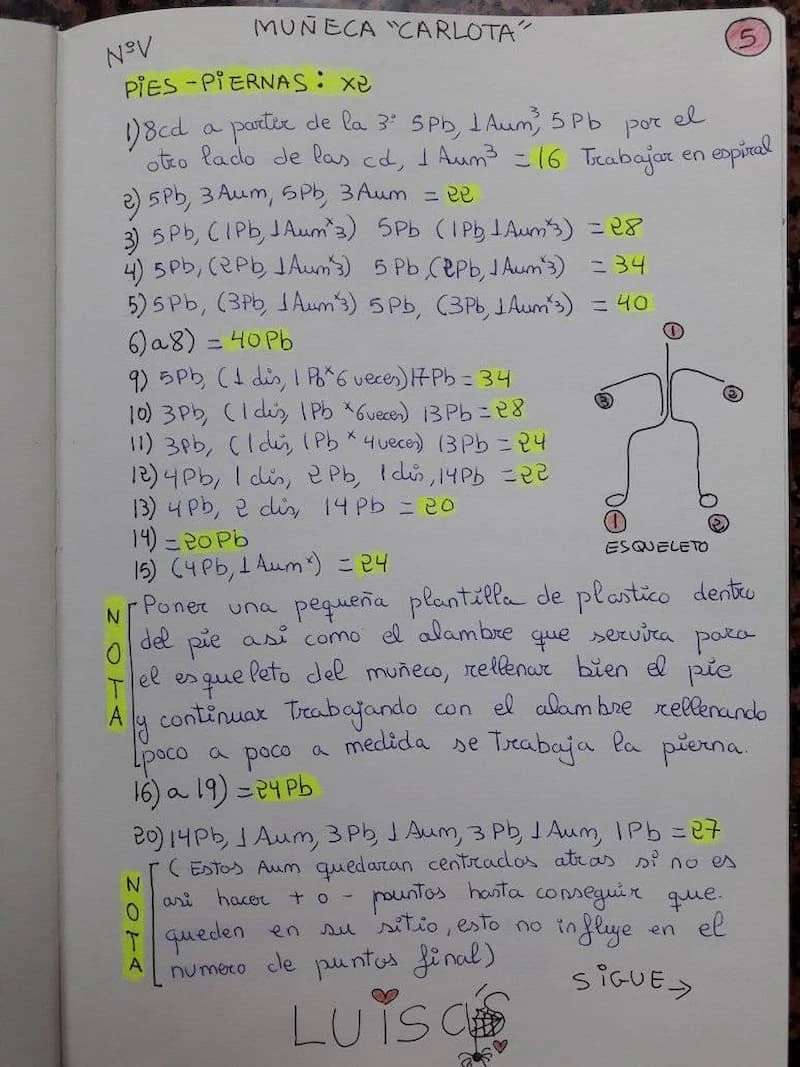 MUÑECA "CARLOTA"
5
NºV
PIES-PIERNAS: x2
1) 8cd a partir de la 3ª 5Pb, 1Aum³, 5Pb por el
otro lado de las cd, 1Aum³ = 16 Trabajar en espiral
2) 5Pb, 3Aum, 5Pb, 3Aum = 22
3) 5Pb, (1Pb, 1Aum*3) 5Pb (1Pb, 1Aum*3) = 28
4) 5Pb, (2Pb, 1Aum*3) 5Pb, (2Pb, 1Aum*3) = 34
5) 5Pb, (3Pb, 1Aum*3) 5Pb, (3Pb, 1Aum*3) = 40
6) a 8) = 40Pb
9) 5Pb, (1 dis, 1Pb*6 veces) 17Pb = 34
10) 3Pb, (1 dis, 1Pb *6veces) 13Pb = 28
11) 3Pb, (1 dis, 1Pb * 4veces) 13Pb = 24
12) 4Pb, 1 dis, 2Pb, 1 dis, 14Pb = 22
13) 4Pb, 2 dis, 14Pb = 20
14) = 20Pb
15) (4Pb, 1Aum*) = 24
1
3
2
1
2
ESQUELETO
NOTA
Poner una pequeña plantilla de plastico dentro
del pie asi como el alambre que servira para
el esqueleto del muñeco, rellenar bien el pie
y continuar Trabajando con el alambre rellenando
poco a poco a medida se Trabaja la pierna.
16) a 19) = 24Pb
20) 14Pb, 1Aum, 3Pb, 1Aum, 3Pb, 1Aum, 1Pb = 27
NOTA
(Estos Aum quedaran centrados atras si no es
asi hacer + o - puntos hasta conseguir que
queden en su sitio, esto no influye en el
numero de puntos final)
SIGUE →
LUISAS